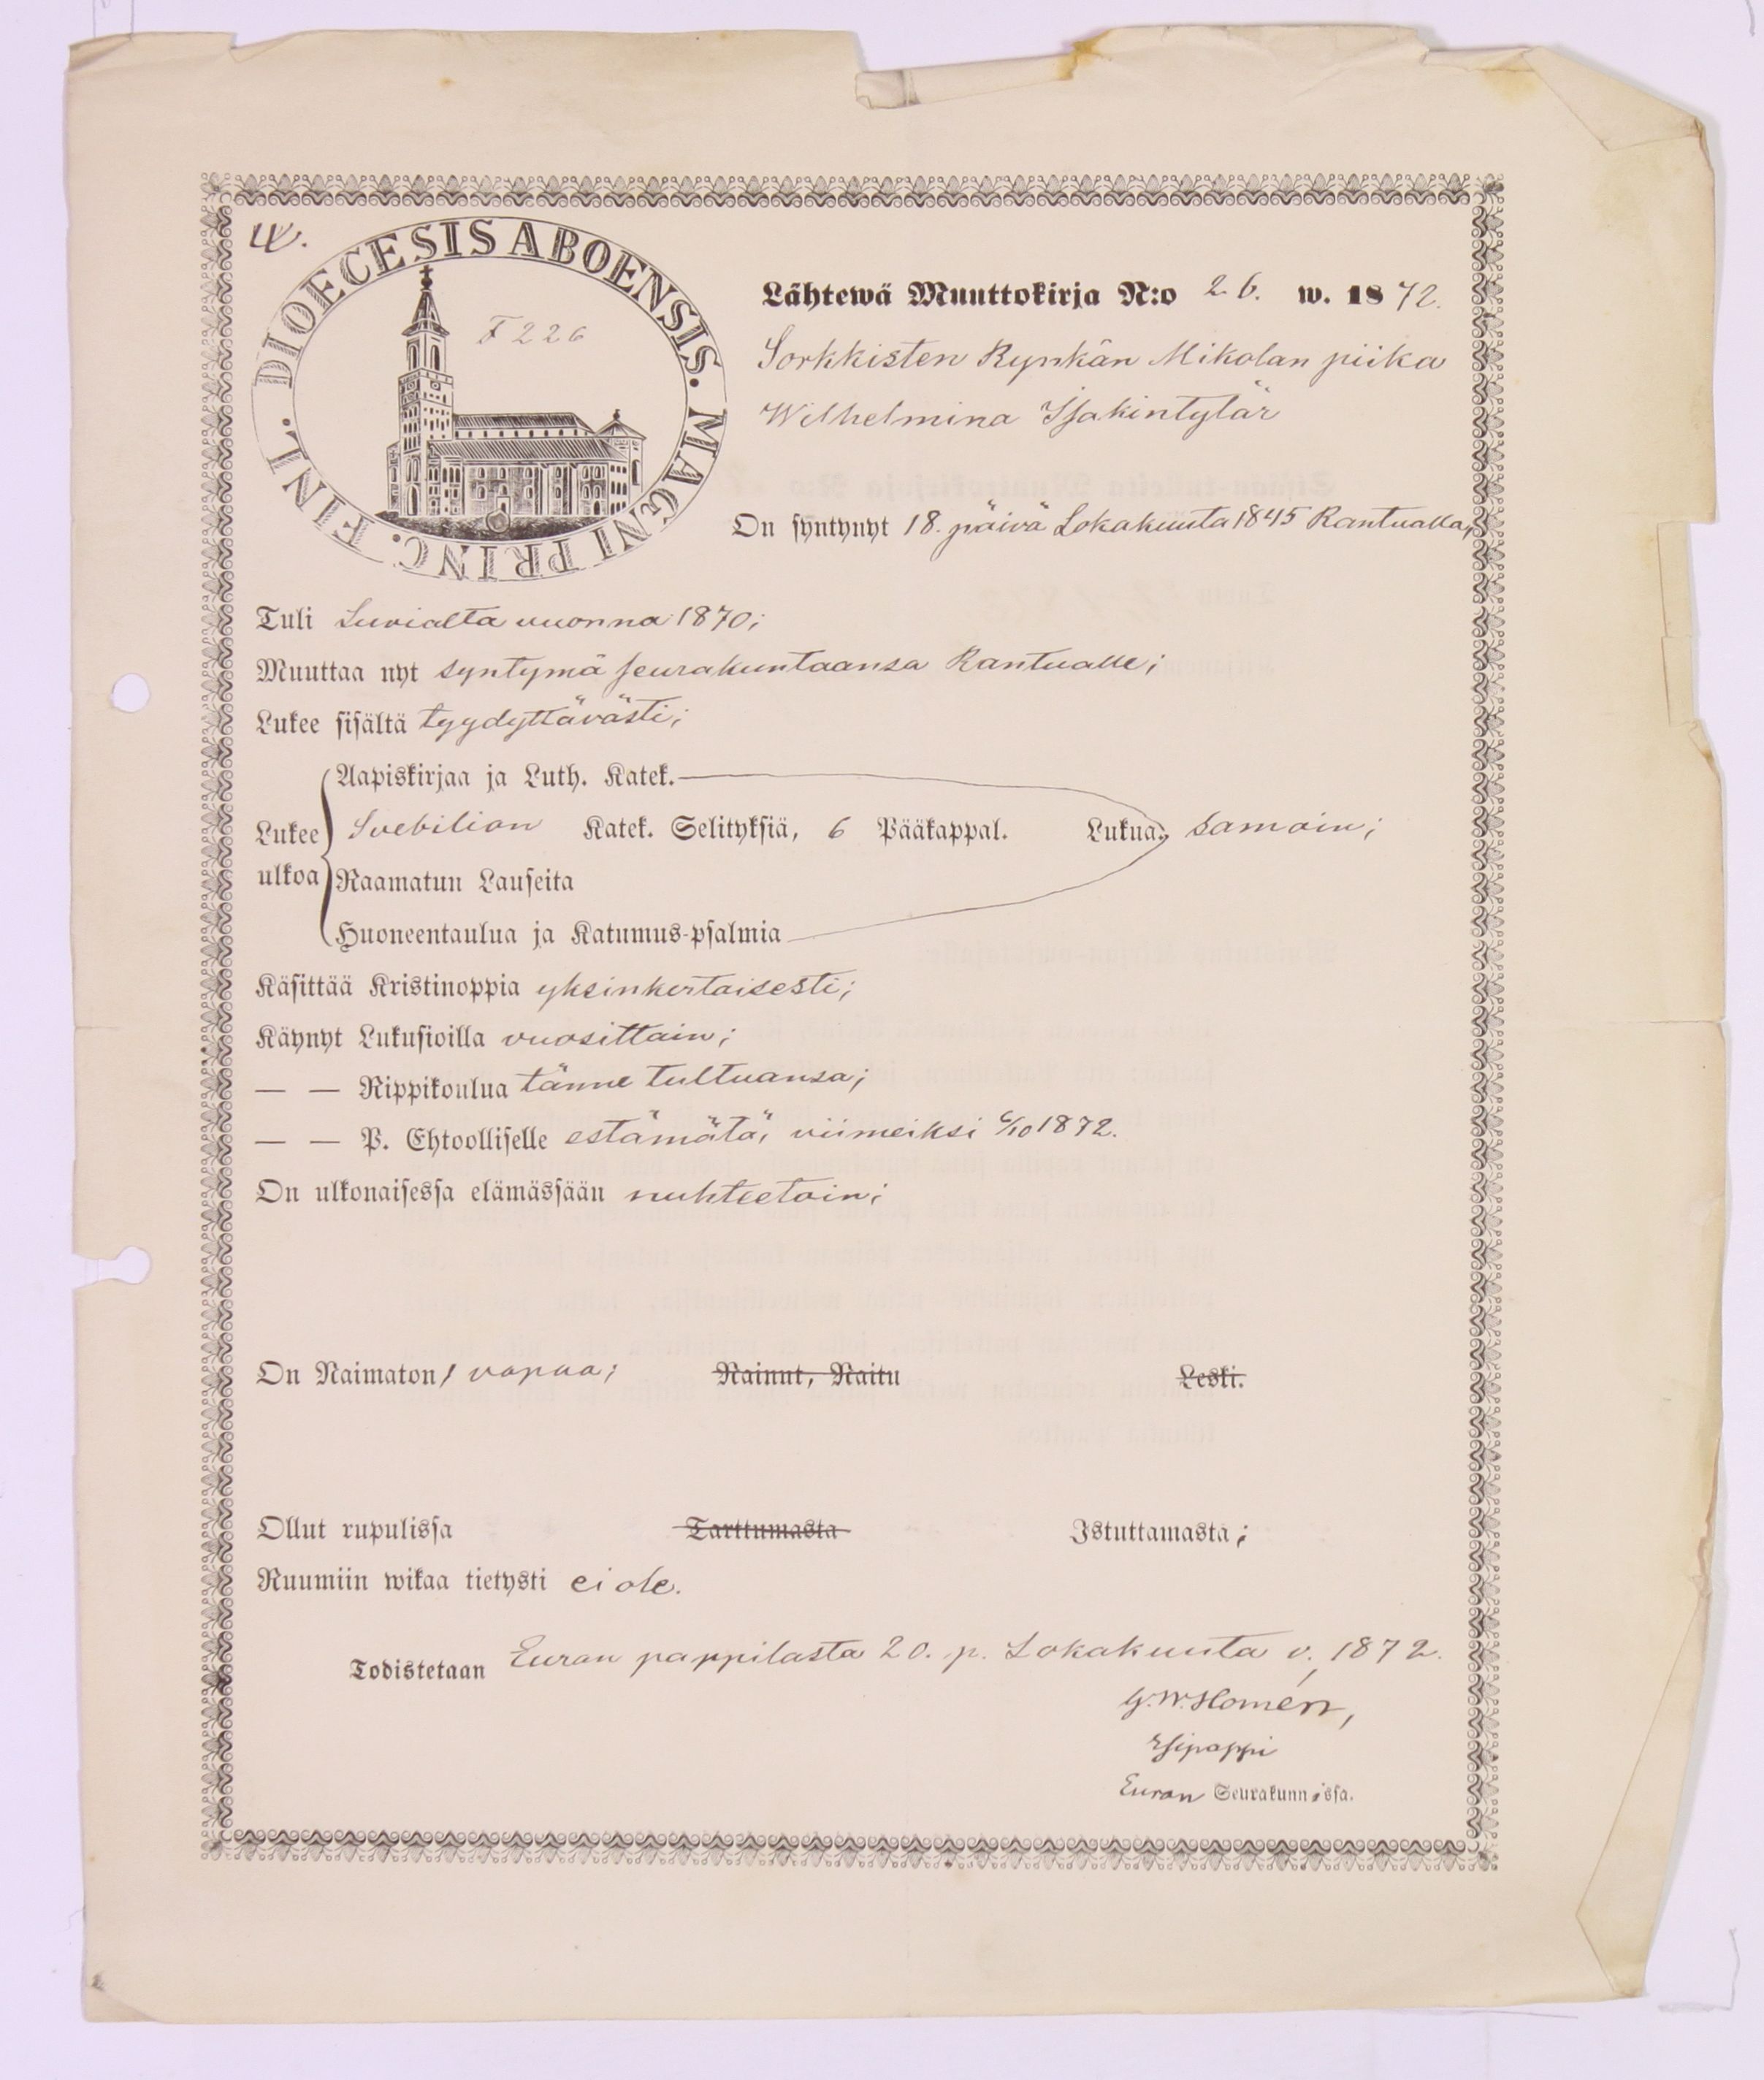 DIOECESIS ABOENSIS. MAGNI PRINC. FINL.
F 226
Lähtewä Muuttokirja N:o 26. w. 1872.
Sorkkisten Rynkän Mikolan piika
Wilhelmina Isakintytär
On syntynyt 18. päivä Lokakuuta 1845 Rantualla,
Tuli Luvialta vuonna 1870;
Muuttaa nyt syntymä seurakuntaansa Rantualle;
Lukee sisältä tyydyttävästi;
Aapiskirjaa ja Luth. Katek.
Lukee ulkoa Svebilion Katek. Selityksiä, 6 Pääkappal. Lukua, samoin;
Raamatun Lauseita
Huoneentaulua ja Katumus-psalmia
Käsittää Kristinoppia yksinkertaisesti;
Käynyt Lukusioilla vuosittain;
— — Rippikoulua tänne tultuansa;
— — P. Ehtoolliselle estämätä, viimeiksi 6/10 1872.
On ulkonaisessa elämässään nuhteetoin;
On Naimaton, vapaa; Nainut, Naitu Leski.
Ollut rupulissa Tarttumasta Istuttamasta;
Ruumiin wikaa tietysti ei ole.
Todistetaan Euran pappilasta 20. p. Lokakuuta v. 1872.
G. W. Homén,
Esipappi
Euran Seurakunnissa.